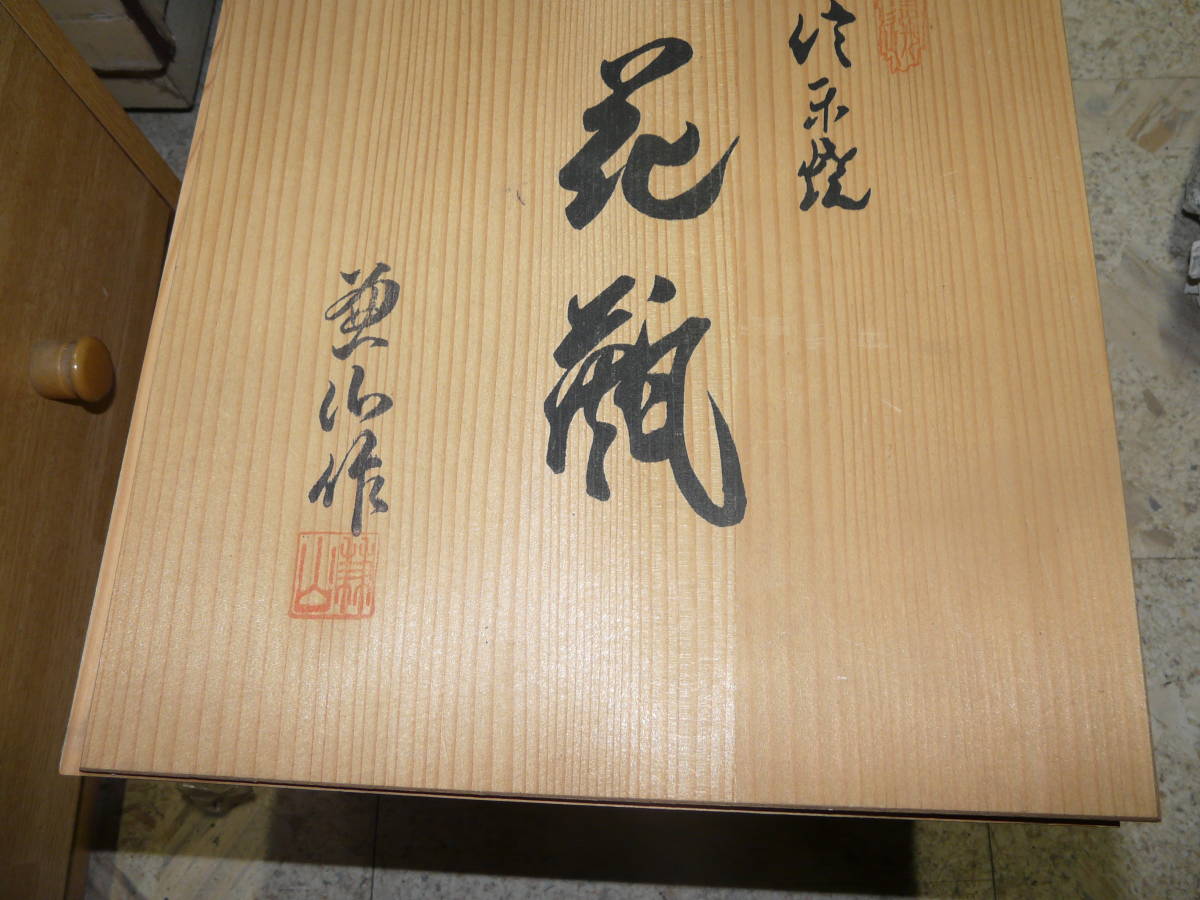 信楽焼
花瓶
作
山